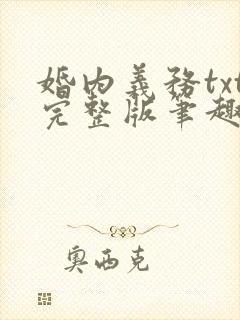 婚内義務txt
完整版筆趣
奧西克